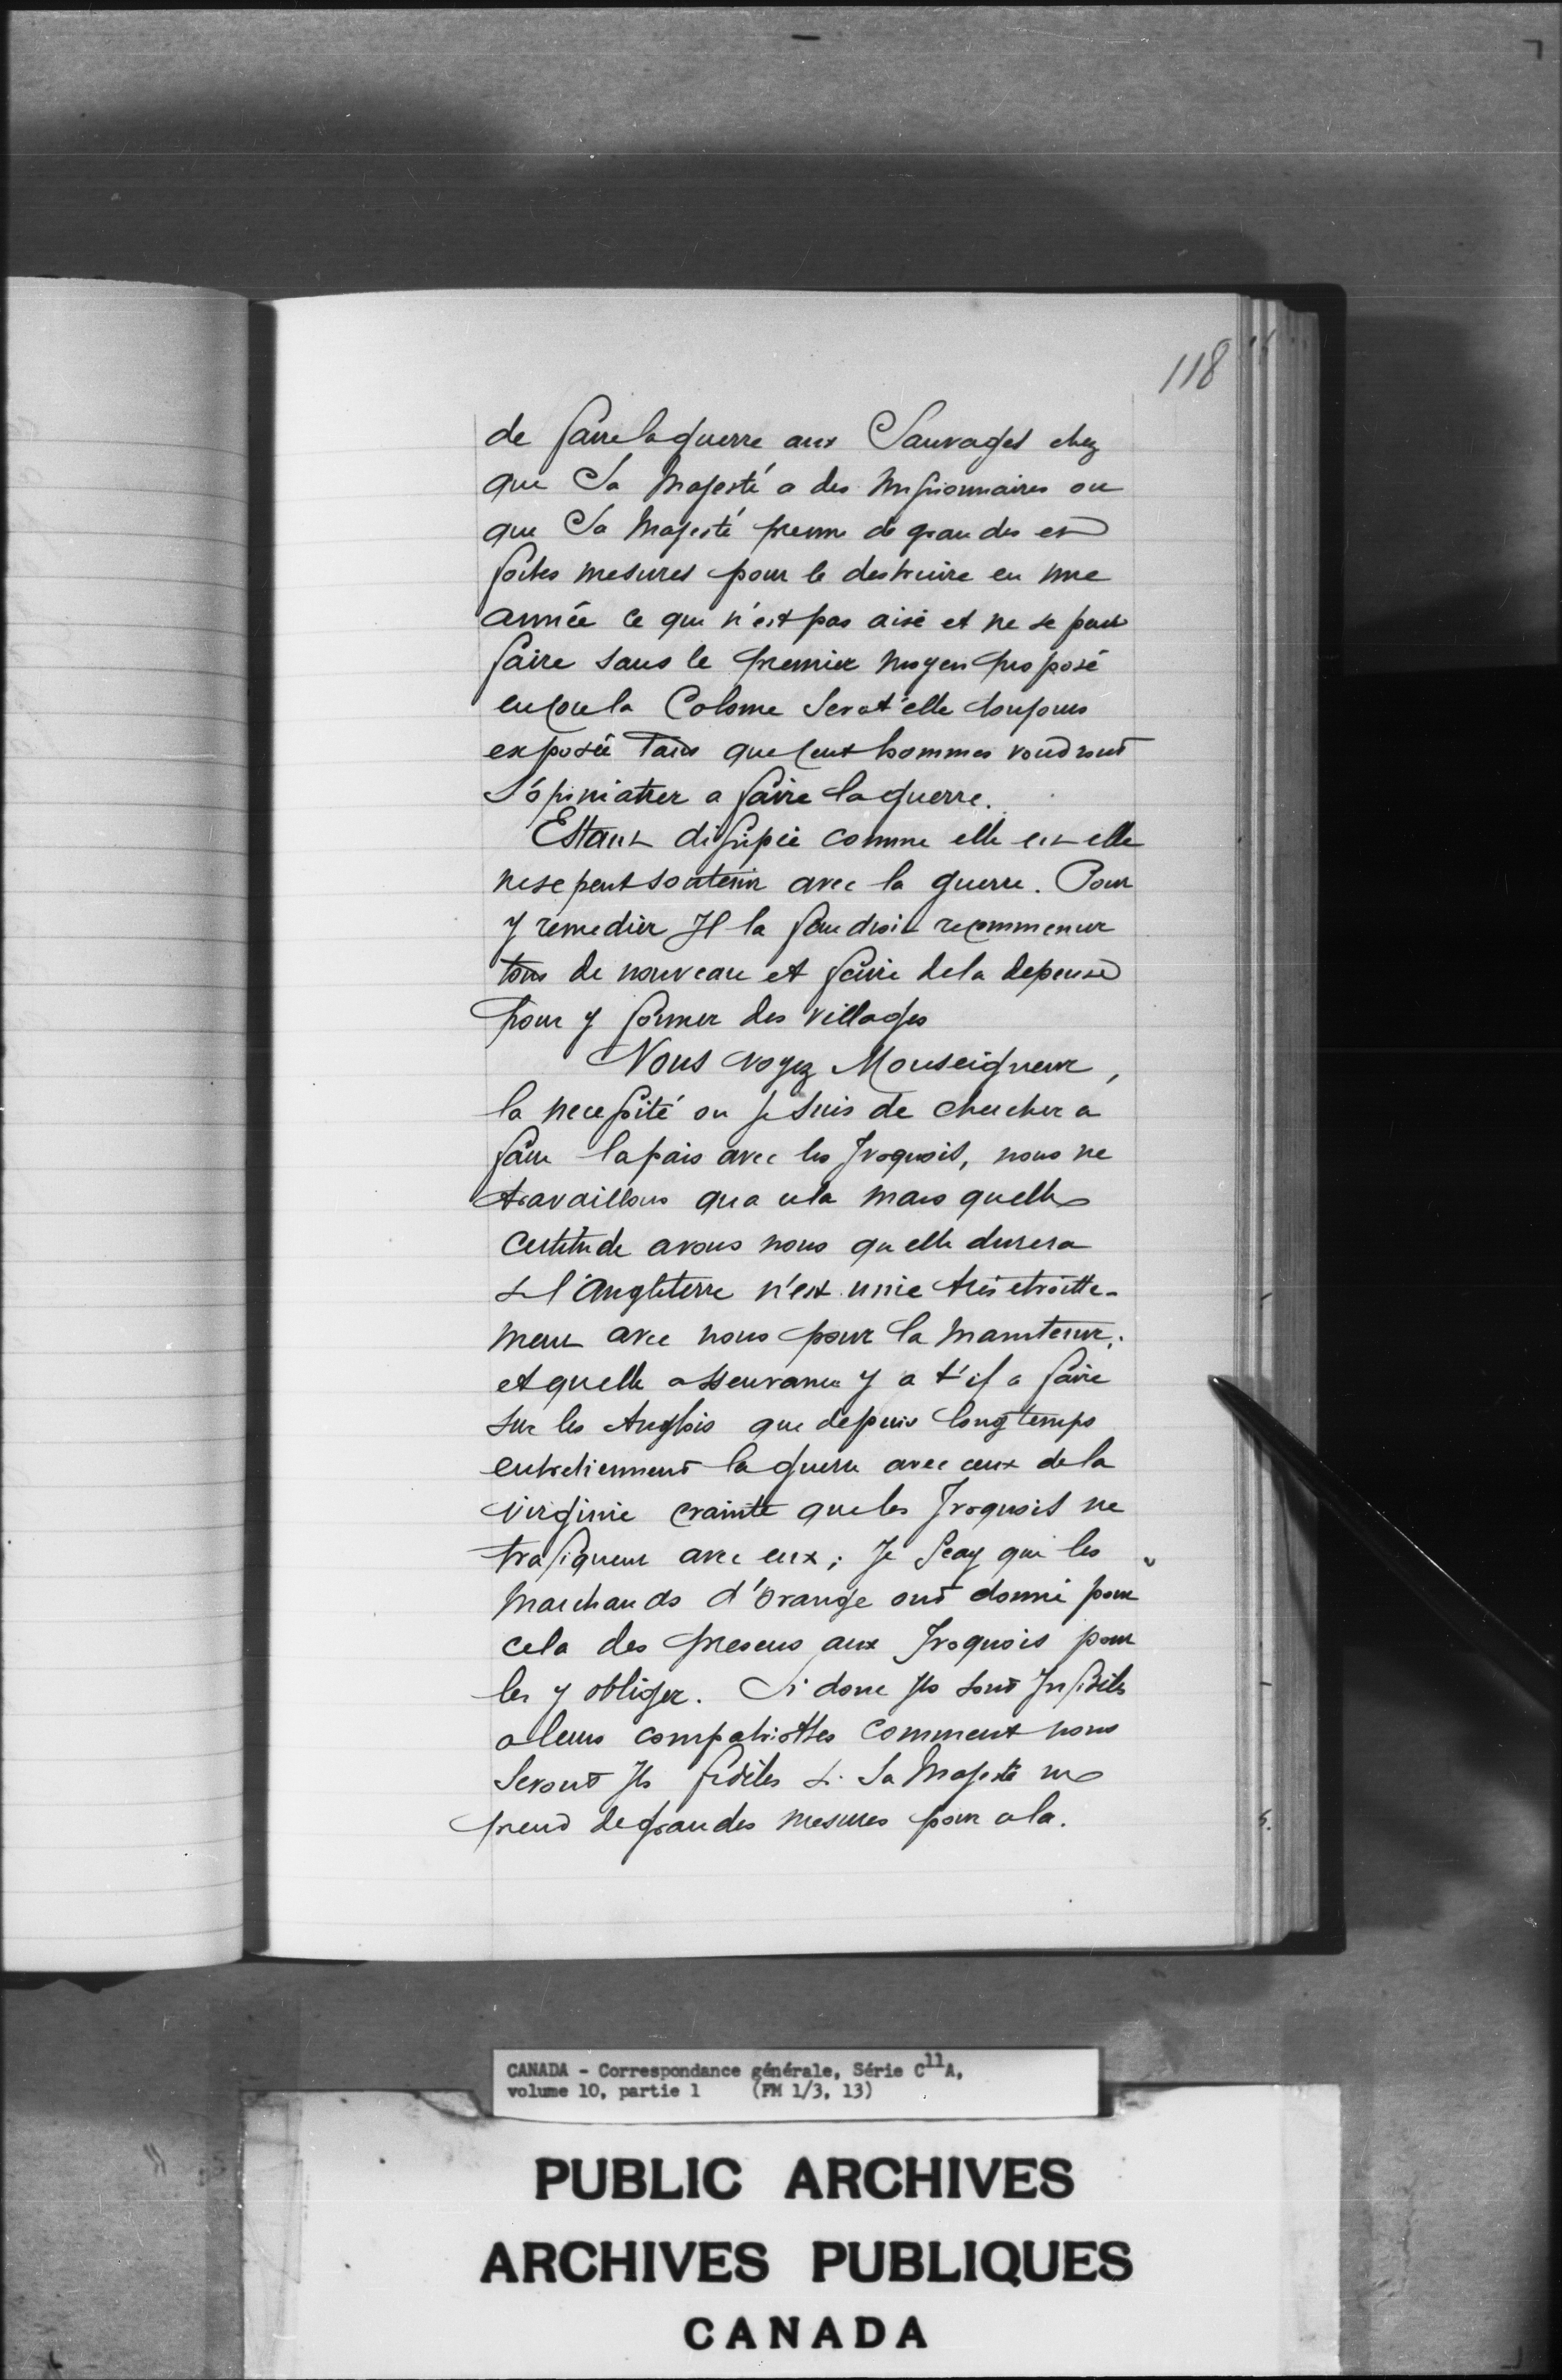 118
de faire la guerre aux Sauvages chez
que Sa Majesté a des Missionnaires ou
que Sa Majesté prenne de grandes et
fortes mesures pour le destruire en une
année ce qui n'est pas aisé et ne se peut
faire sans le premier moyen proposé
encore la Colonie Serat'elle toujours
exposée Tant que cent hommes voudront
S'opiniatrer a faire la guerre.
Estant dissipée comme elle est elle
ne se peut soutenir avec la guerre. Pour
y remedier Il la faudroit recommencer
tout de nouveau et faire de la depense
pour y former des villages
Vous voyez Monseigneur,
la necessité ou je suis de chercher a
faire la paix avec les Iroquois, nous ne
travaillons qu a cela mais quelle
certitude avons nous qu elle durera
si l'Angleterre n'est unie très etroitte-
ment avec nous pour la maintenir;
et quelle asseurance y a t'il a faire
sur les Anglois que depuis longtemps
entretiennent la guerre avec ceux de la
Virginie crainte que les Iroquois ne
trafiquent avec eux; Je Scay que les
Marchands d'Orange ont donné pour
cela des presens aux Iroquois pour
les y obliger. Si donc Ils sont Infidels
a leurs compatriottes comment nous
Seront Ils fidèles si Sa Majesté ne
prend de grandes mesures pour cela.
CANADA - Correspondance générale, Série C11A,
volume 10, partie 1 (FM 1/3, 13)
PUBLIC ARCHIVES
ARCHIVES PUBLIQUES
CANADA